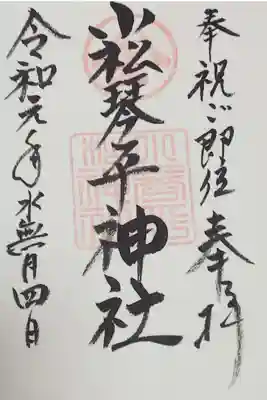 奉祝ご即位 奉拝
小松琴平神社
令和元年水無月四日